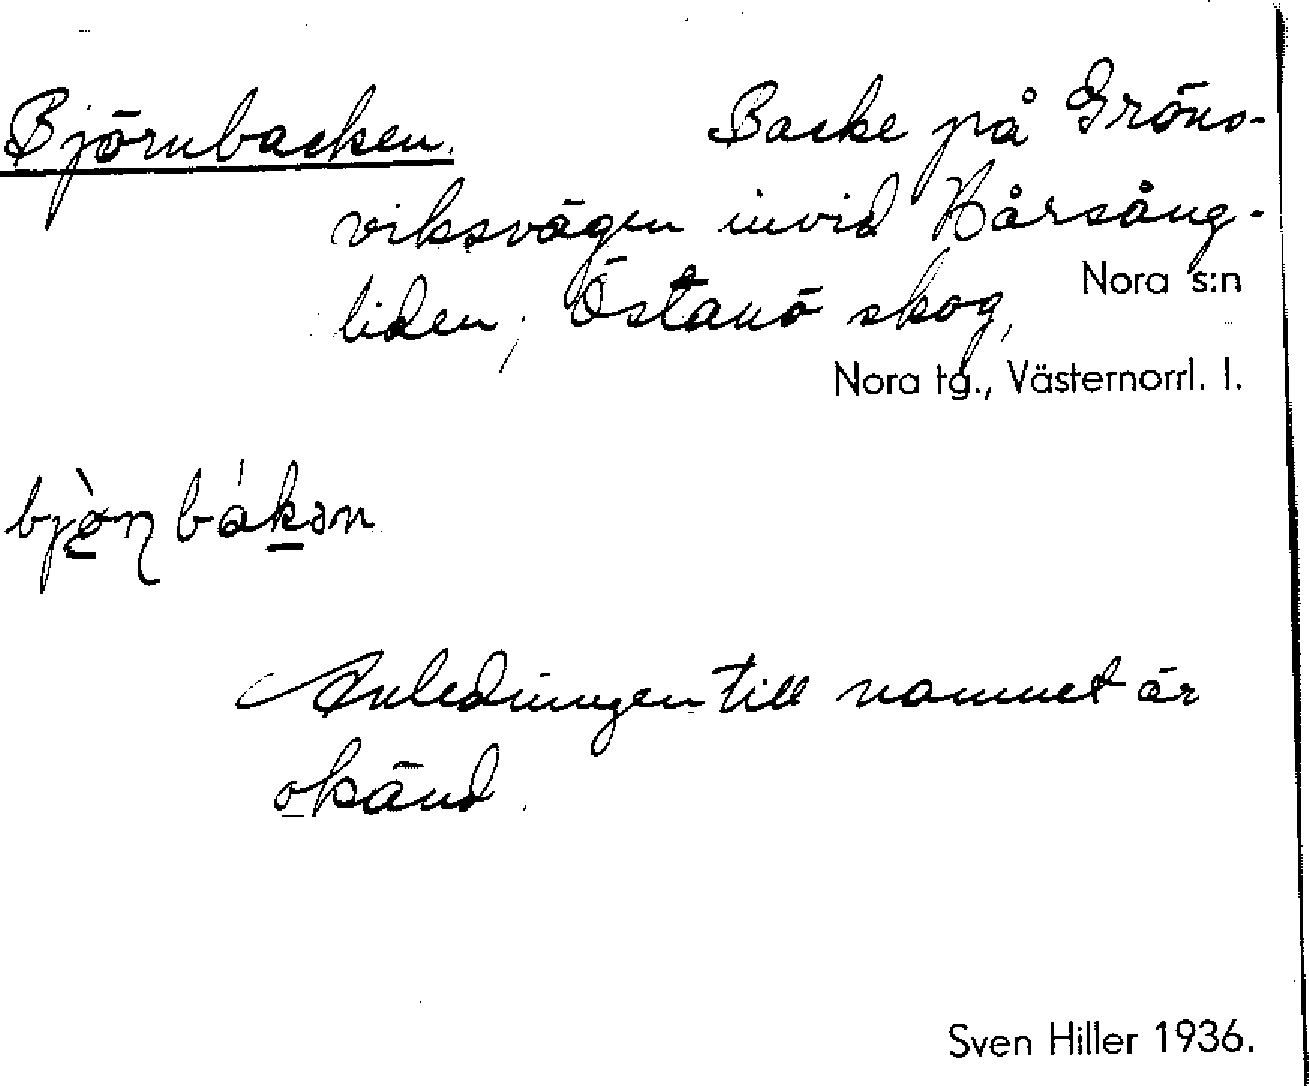 Björnbacken. Backe på Gröns-
viksvägen invid Hårsång-
Nora s:n
liden, Östanö skog,
Nora tg., Västernorrl. l.
bjò̱ɳbákən
Anledningen till namnet är
okänd.
Sven Hiller 1936.